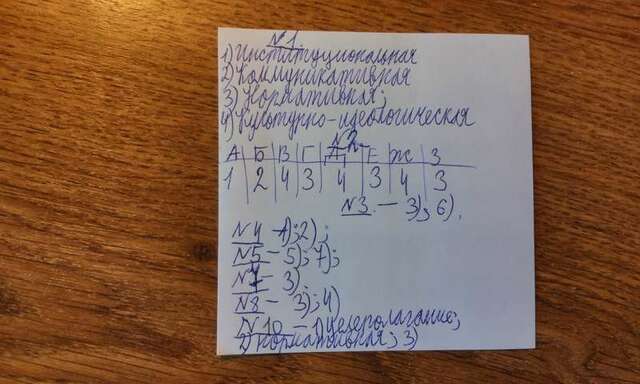 №1.
1) Институциональная
2) Коммуникативная
3) Нормативная;
4) Культурно-идеологическая
№2.
А Б В Г Д Е Ж З
1 2 4 3 4 3 4 3
№3. – 3); 6).
№4 – 1); 2);
№5 – 5); 7);
№7 – 3)
№8 – 3); 4)
№10 – 1) Целеполагание;
2) нормативная; 3)